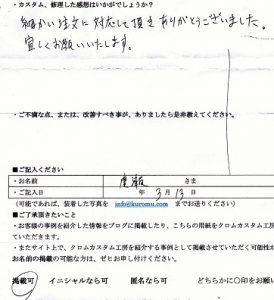 ・カスタム、修理した感想はいかがでしょうか？
細かい注文に対応して頂きありがとうございました。
宜しくお願いいたします。
・ご不満な点、または、改善すべき事が、ありましたら是非教えてください。
■ご記入ください
・お名前 廣瀬 さま
・ご記入日 年 3月 13日
（可能であれば、装着した写真を info@kuromu.com までお送りください）
■ご了承頂きたいこと
・お客様の事例を紹介した情報をブログに掲載したり、こちらの用紙をクロムカスタム工房
ていただきます。
・またサイト上で、クロムカスタム工房を紹介する事例として掲載させていただく可能性が
お名前の掲載の可能な方は、ぜひお声付けください。
掲載可 イニシャルなら可 匿名なら可 どちらかに〇印をお願い